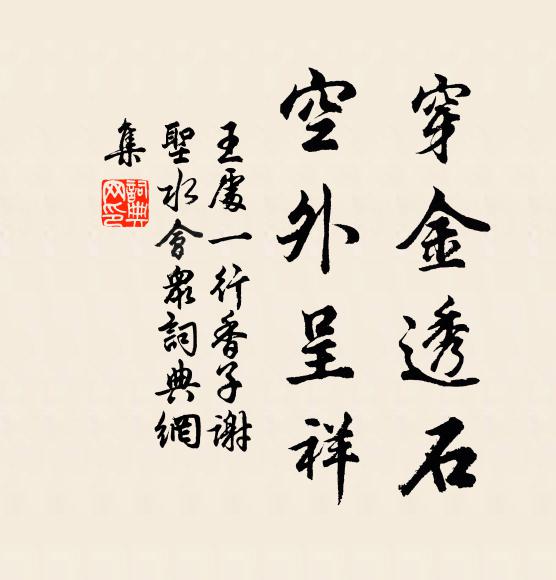 穿金透石
空外呈祥
王處一行香子謝
聖水會眾詞典網
集
詞典網印